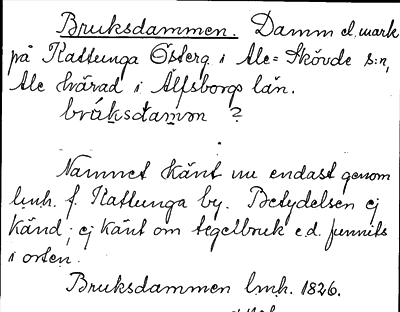 Bruksdammen. Damm el. mark
på Kattunga Österg. i Ale-Skövde s:n,
Ale härad i Älfsborgs län.
brúksdamən ?
Namnet känt nu endast genom
lmh. f. Kattunga by. Betydelsen ej
känd; ej känt om tegelbruk e.d. funnits
i orten.
Bruksdammen lmh. 1826.